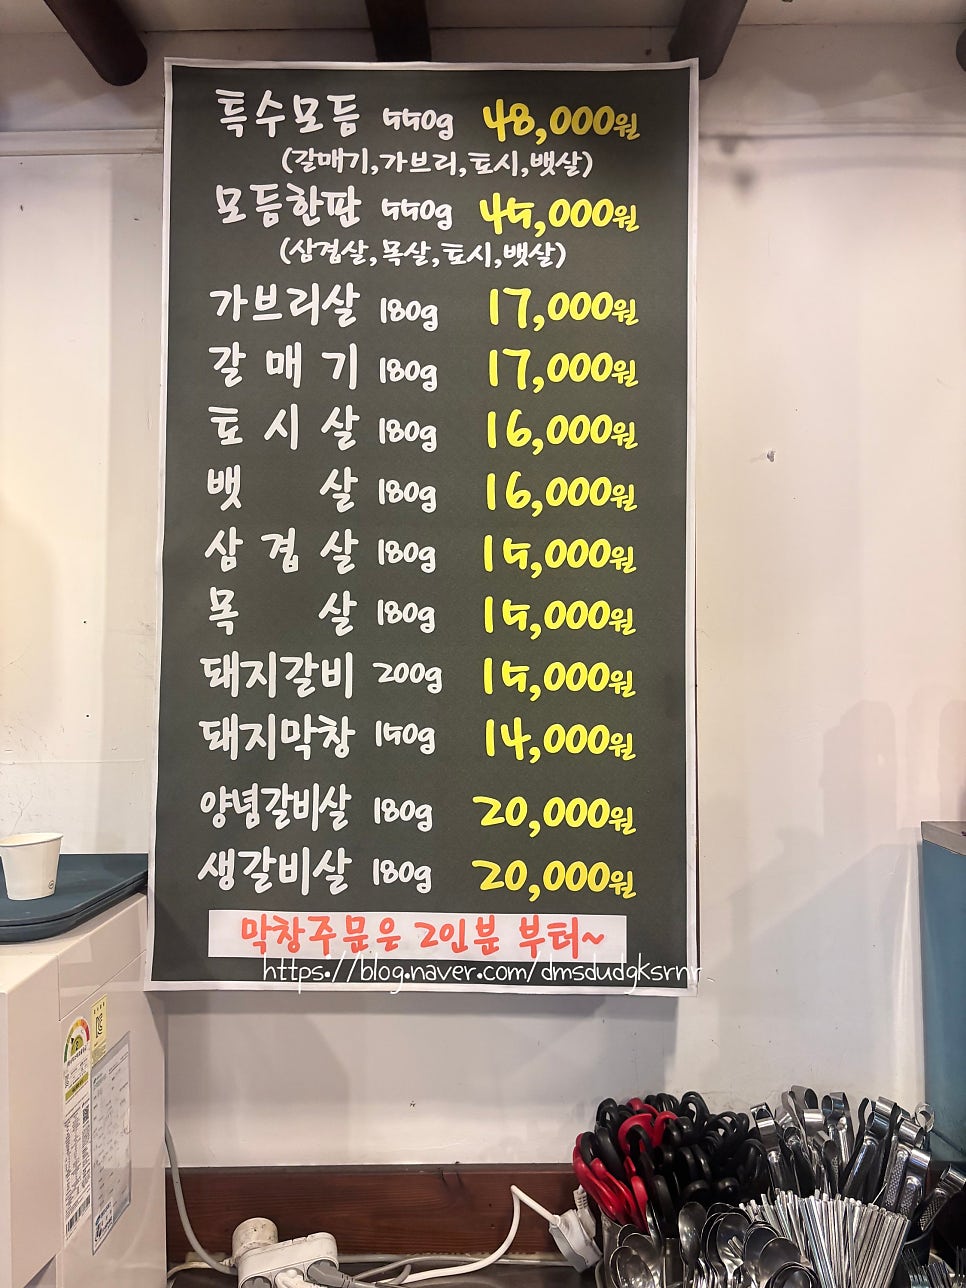 특수모듬 550g 48,000원
(갈매기,가브리,토시,뱃살)
모듬한판 550g 45,000원
(삼겹살,목살,토시,뱃살)
가브리살 180g 17,000원
갈매기 180g 17,000원
토시살 180g 16,000원
뱃살 180g 16,000원
삼겹살 180g 15,000원
목살 180g 15,000원
돼지갈비 200g 15,000원
돼지막창 150g 14,000원
양념갈비살 180g 20,000원
생갈비살 180g 20,000원
막창주문은 2인분 부터~
https://blog.naver.com/dmsdudgksrnr